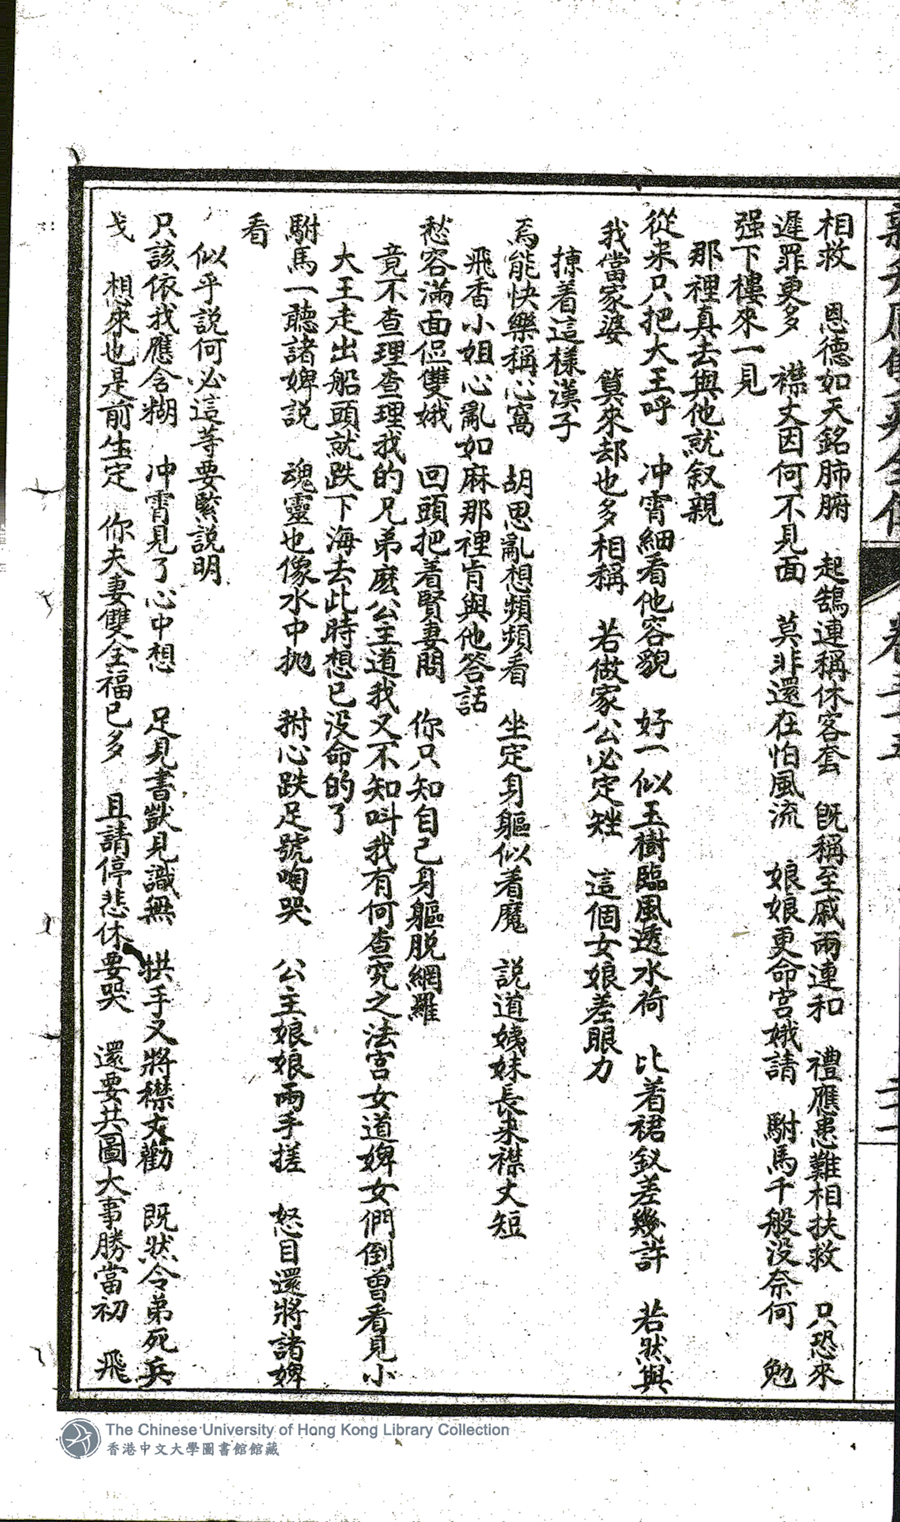 相救　恩德如天銘肺腑　起鵠連稱休客套　既稱至戚兩連和　禮應患難相扶救　只恐來
遲罪更多　襟丈因何不見面　莫非還在怕風流　娘娘更命宮娥請　駙馬千般没奈何　勉
强下樓來一見
那裡真去與他就叙親
從来只把大王呼　冲霄細看他容貌　好一似玉樹臨風透水荷　比着裙釵差幾許　若然與
我當家婆　算來却也多相稱　若做家公必定矬　這個女娘差眼力
揀着這樣漢子
焉能快樂稱心窩　胡思亂想頻頻看　坐定身軀似着魔　說道姨妹長来襟丈短
飛香小姐心亂如麻那裡肯與他答話
愁容滿面侣雙娥　回頭把着賢妻問　你只知自己身軀脱網羅
竟不查理查理我的兄弟麽公主道我又不知叫我有何查究之法宫女道婢女們倒曾看見小
大王走出船頭就跌下海去此時想已没命的了
駙馬一聽諸婢説　魂靈也像水中抛　拊心跌足號啕哭　公主娘娘兩手搓　怒目還將諸婢
看
似乎説何必這等要緊説明
只該依我應含糊　冲霄見了心中想　足見書獃見識無　拱手又將襟丈勸　既然令弟死兵
戈　想來也是前生定　你夫妻雙全福已多　且請停悲休要哭　還要共圖大事勝當初　飛
卷三十五
The Chinese University of Hong Kong Library Collection
香港中文大學圖書館館藏